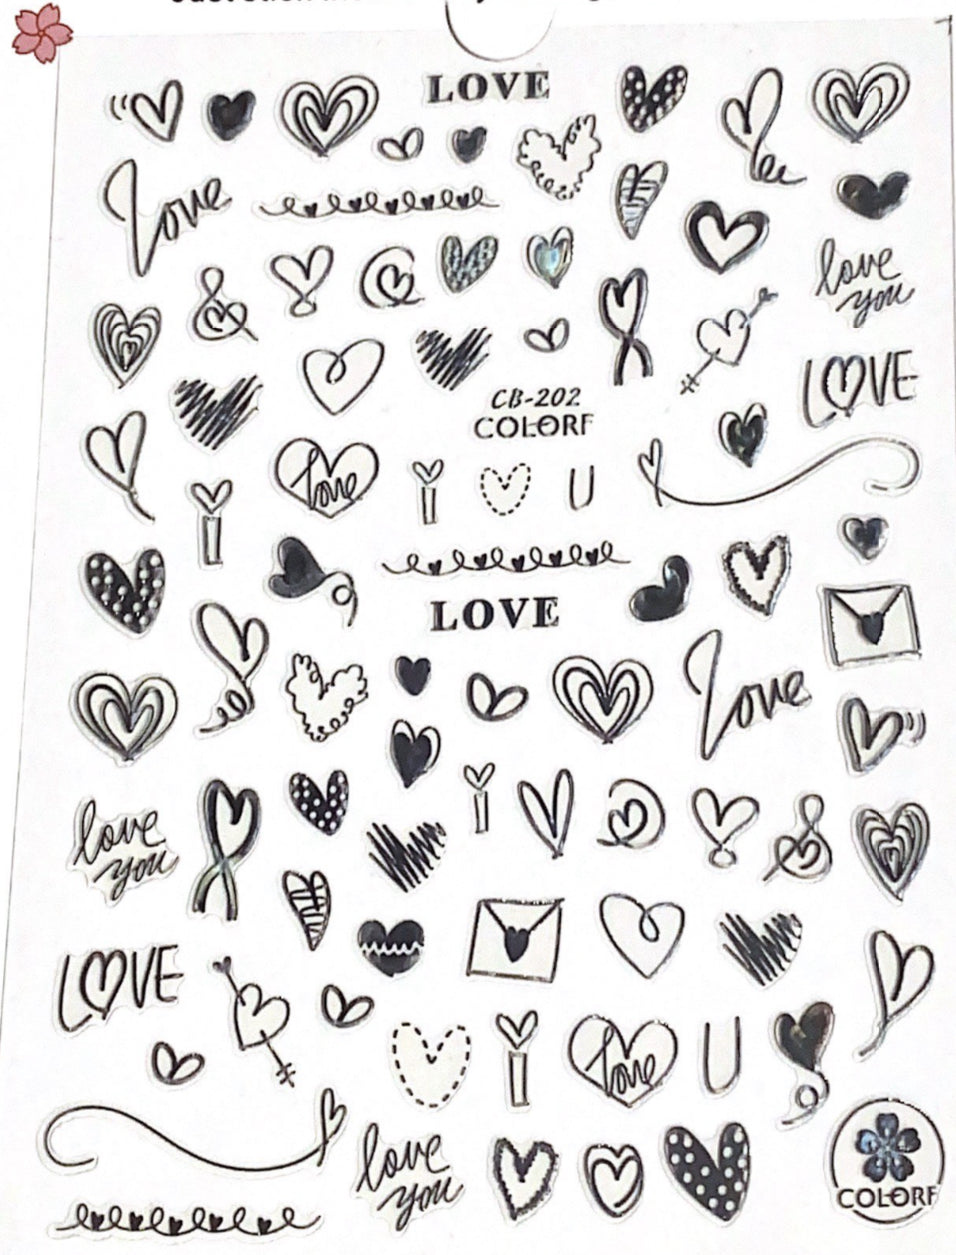 LOVE
love
love
you
LOVE
CB-202
COLORF
love
I
U
LOVE
love
I
love
you
LOVE
I
love
U
love
you
COLORF